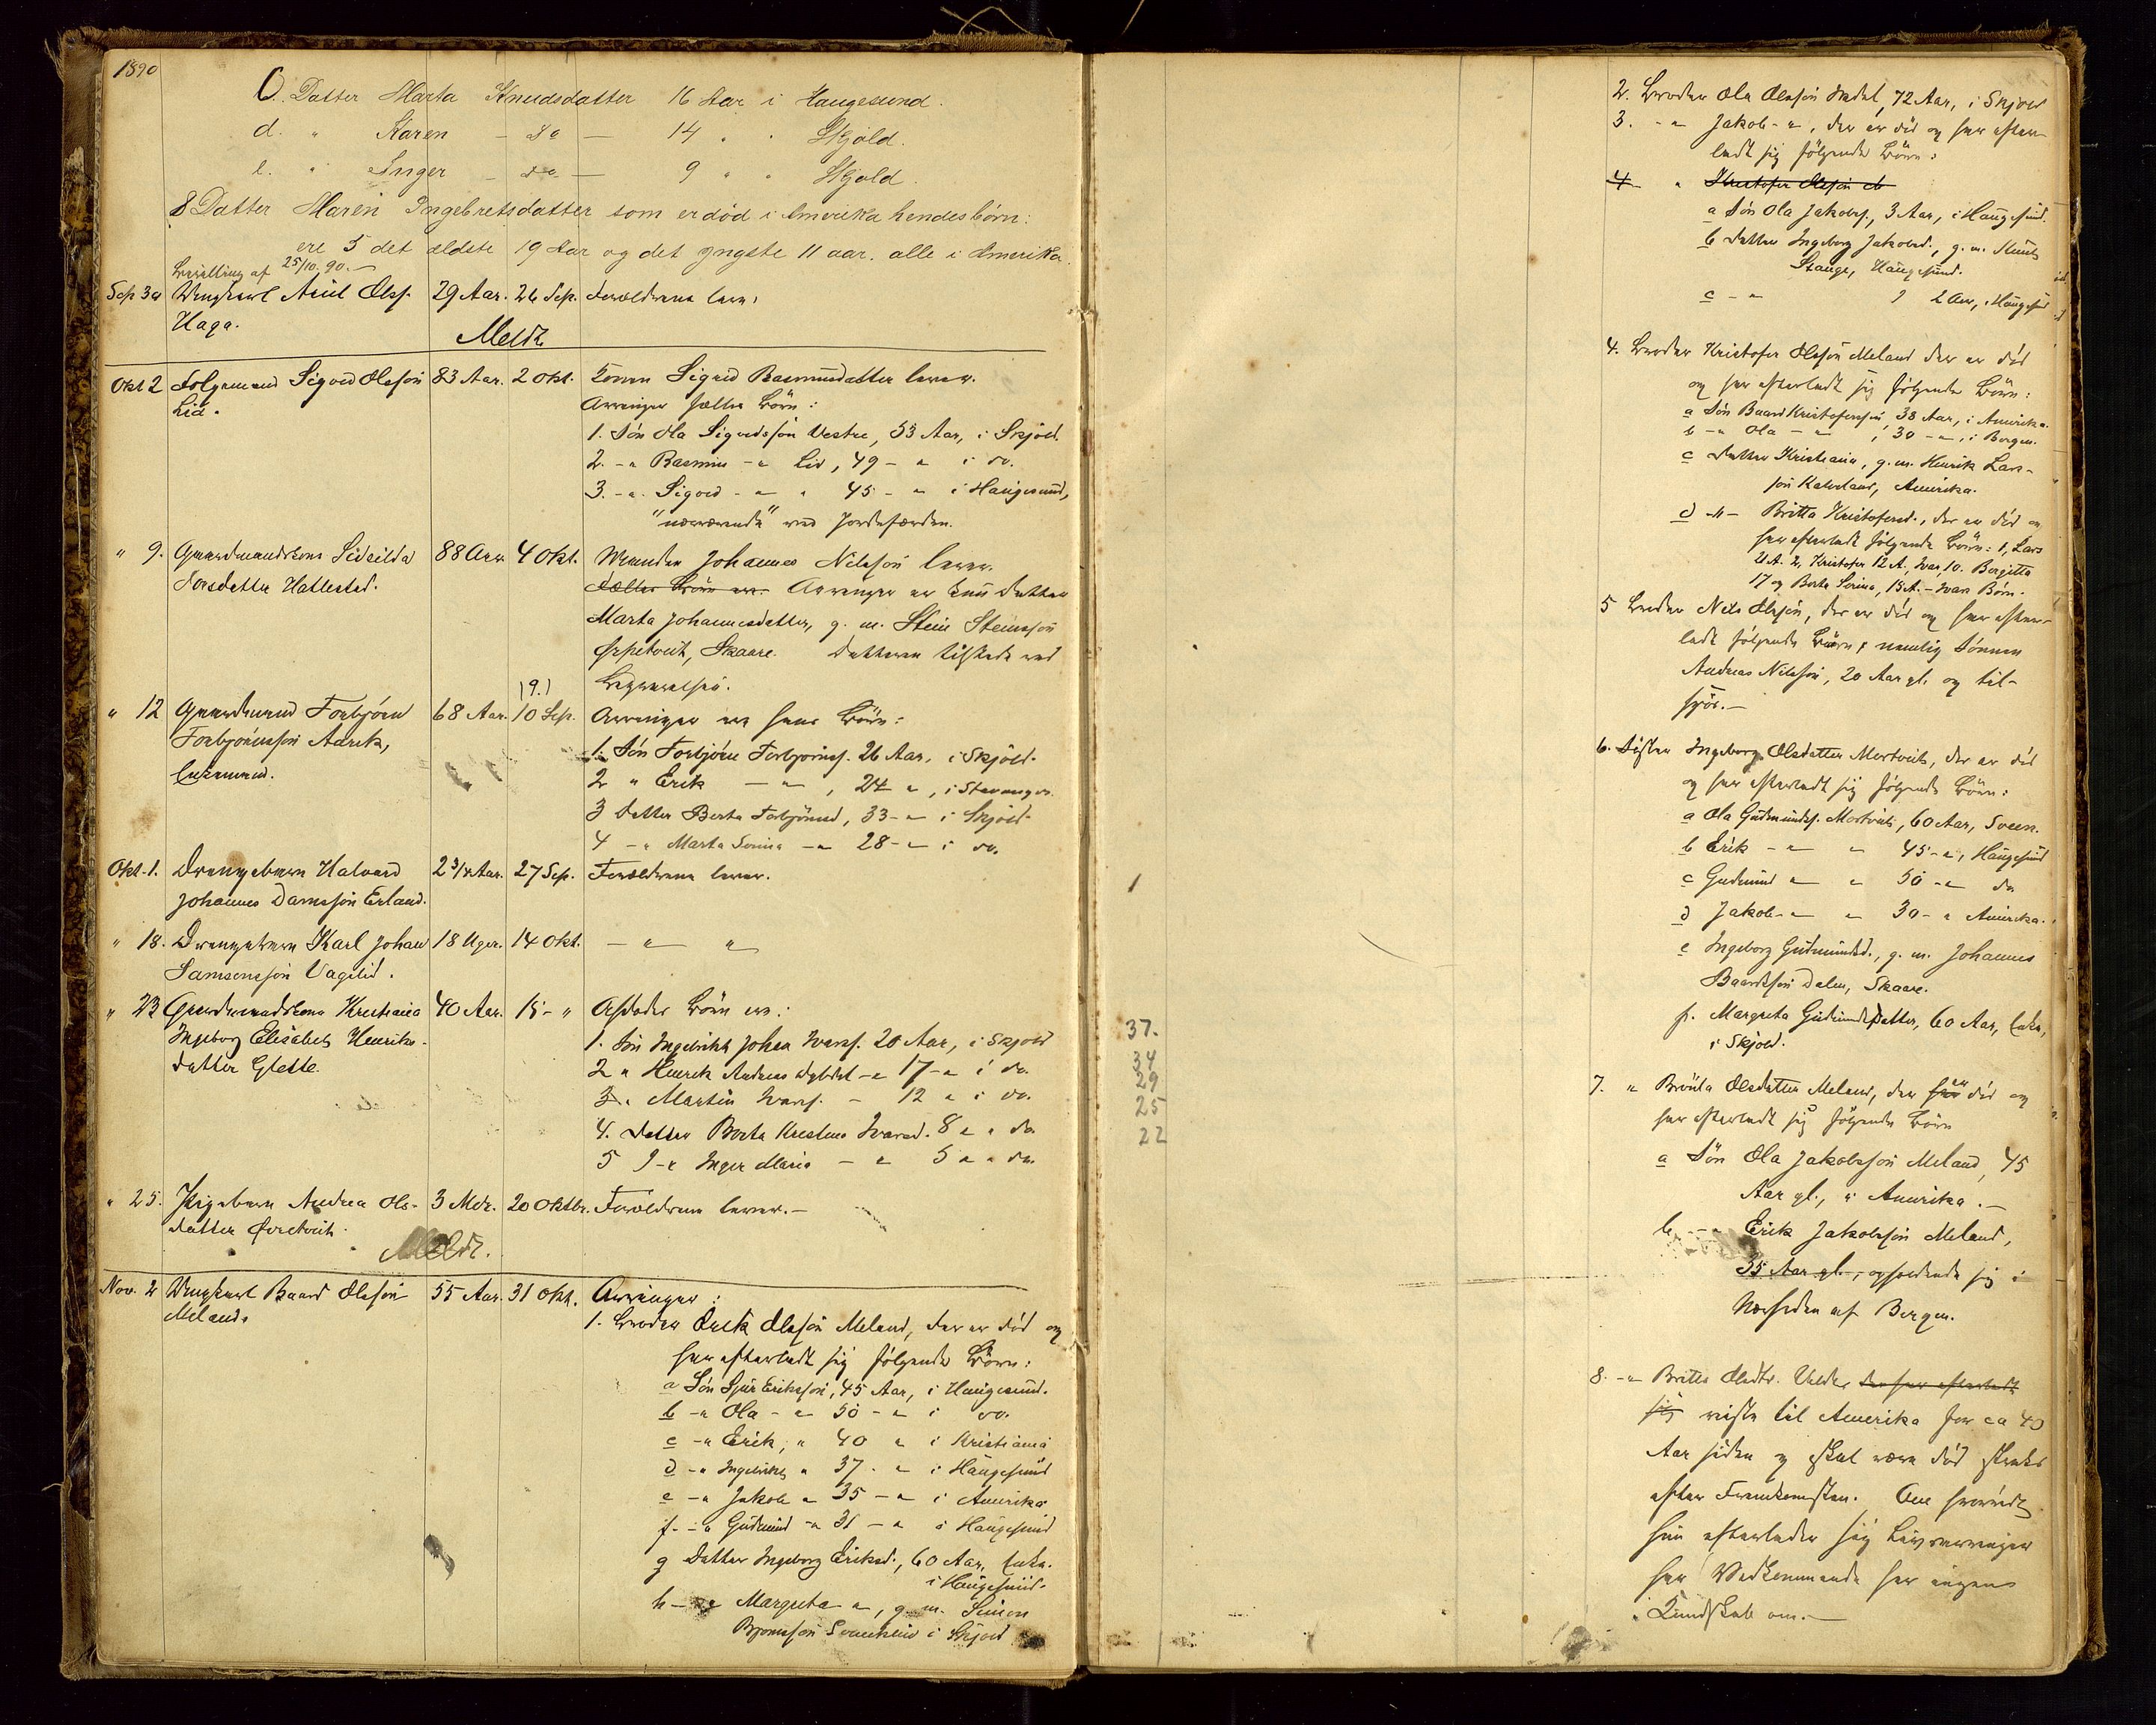 1890
C. Datter Marta Knudsdatter 16 Aar i Haugesund.
d. " Karen - do - 14 " " Skjold.
e. " Inger - do - 9 " " Skjold
8 Datter Maren Ingebretsdatter som er død i Amerika hendes børn:
ere 5 det ældste 19 Aar og det yngste 11 aar. alle i Amerika.
Bevilling af 25/10. 90.-
Sep 30 Ungkarl Olsf. 29 Aar. 26 Sep. Forældrene lever.
Haga.
Meldt
Okt 2 Folgemand Sigvod Olsson 83 Aar. 2 Okt. Konen Sigrid Rasmusdatter lever.
Lid. Arvinger fælles Børn:
1. Søn Ola Sigvodsson Vestre, 53 Aar, i Skjold.
2. -" Rasmus -" Lid, 49 - " i do.
3. -" Sigvod - " " 45 - " i Haugesund,
"nærværende" ved Jordefærden.
" 9. Gaardmandskone Sidsilda 88 Aar 4 Okt. Manden Johannes Nilsson lever.
Torsdatter Hattestad. Fælles Børn ere. Arvinger er kun Datter
Marta Johannesdatter, g. m. Stein Steinsson
Skaare. Datteren tilstede ved
Begravelsen.
(9.)
" 12 Gaardmand Torbjørn 68 Aar. 10 Sep. Arvinger ere hans Børn:
Torbjørnsson Aarek, 1. Søn Torbjørn Torbjørnsf. 26 Aar, i Skjold.
Enkemand. 2 " Erik - " , 24 " , i Stavanger.
3 Datter Berta Torbjørnsd, 33 - " i Skjold.
4 - " Marta Sonina - " 28 - " i do.
Okt. 1. Drengebarn Halvard 2 3/4 Aar. 27 Sep. Forældrene lever.
Johannes Erland.
" 18. Drengebarn Karl Johan 18 Uger. 14 Okt. - " "
Samsonsson Vagelid.
" 23 Gaardmandskone Kristiana 40 Aar. 15 - " Afdødes Børn ere:
Ingeborg Elisabet Henriks- 1. Søn Ingebrikt Johan Ivarsf. 20 Aar, i Skjold
datter Glette. 2 " Henrik Andreas -" 17 - " i do.
3 " Martin Ivarsf. - 12 " i do.
4. Datter Berta Kristine Ivarsd. 8 " " do
5 D-r Inger Maria - " 5 " " do.
" 25. Pigebarn Andrea Ols- 3 Mdr. 20 Oktbr. Forældrene lever.-
datter
Meldt.
Nov. 2 Ungkarl Baard Olsson 55 Aar. 31 Okt. Arvinger:
Meland. 1. Broder Erik Olsson Meland, der er død og
har efterladt sig følgende Børn:
a Søn Sjur Eriksson, 45 Aar, i Haugesund.
b -" Ola - " 50 - " i do.
c -" Erik, " 40 " i Kristiania
d -" Ingebrikt " 37 - " i Haugesund
e -" Jakob " 35 - " i Amerika
f. -" Gudmund -" 31 - " i Haugesund
g Datter Ingeborg Eriksd., 60 Aar, Enke.
i Haugesund.
h - " Margreta - ", g. m. Simon
i Skjold
37.
34
29
25
22
2. Broder Ola Olsson 72 Aar, i Skjold
3. - " Jakob - ", der er død og har efter-
ladt sig følgende Børn:
4 " Kristofer Olsson do
a Søn Ola Jakobs., 3 Aar, i Haugesund.
b Datter Ingeborg Jakobsd., g. m. Knut
Stange, Haugesund.
c - " 2 Aar, i Haugesund
4. Broder Kristofer Olsson Meland der er død
og har efterladt sig følgende Børn:
a Søn Baard Kristoferssøn, 38 Aar, i Amerika.
b -" Ola - " , 30 - " , i Bergen.
c Datter Kristiania, g. m. Henrik Lars-
son Amerika.
d -"- Britta Kristofersd., der er død og
har efterladt følgende Børn: 1, Lars
21 A. 2, Kristofer 12 A., Ivar, 10. Bergitta
17 og Berta Serina, 15 A. - Børn.
5 Broder Nils Olsson, der er død og har efter-
ladt følgende Børn, nemlig Sønnen
Andreas Nilsson, 20 Aar gl. og til-
sjøs.-
6. Søster Ingeborg Olsdatter Mortveit, der er død
og har efterladt sig følgende Børn:
a Ola Gudmunds. Mortveit, 60 Aar, Sveen.
b Erik - " " 45 - ", Haugesund
c Gudmund " " 50 - " do
d Jakob - " " 30 - " Amerika.
e Ingeborg Gudmundsd., g. m. Johannes
Baardsson Dalen, Skaare.
f. Margreta Gudmundsdatter, 60 Aar, Enke,
i Skjold.
7. " Olsdatter Meland, der er død og
har efterladt sig følgende Børn
a Søn Ola Jakobsson Meland, 45
Aar gl., i Amerika.-
b - " Erik Jakobsson Meland,
35 Aar gl., opholdende sig i
Nærheden af Bergen.
8. -" Britta Olsdtr. der har efterladt
sig reiste til Amerika for ca 40
Aar siden og skal være død straks
efter Fremkomsten. Om hvorvidt
hun efterlader sig Livsarvinger
har Vedkommende her ingen
Kundskab om.-